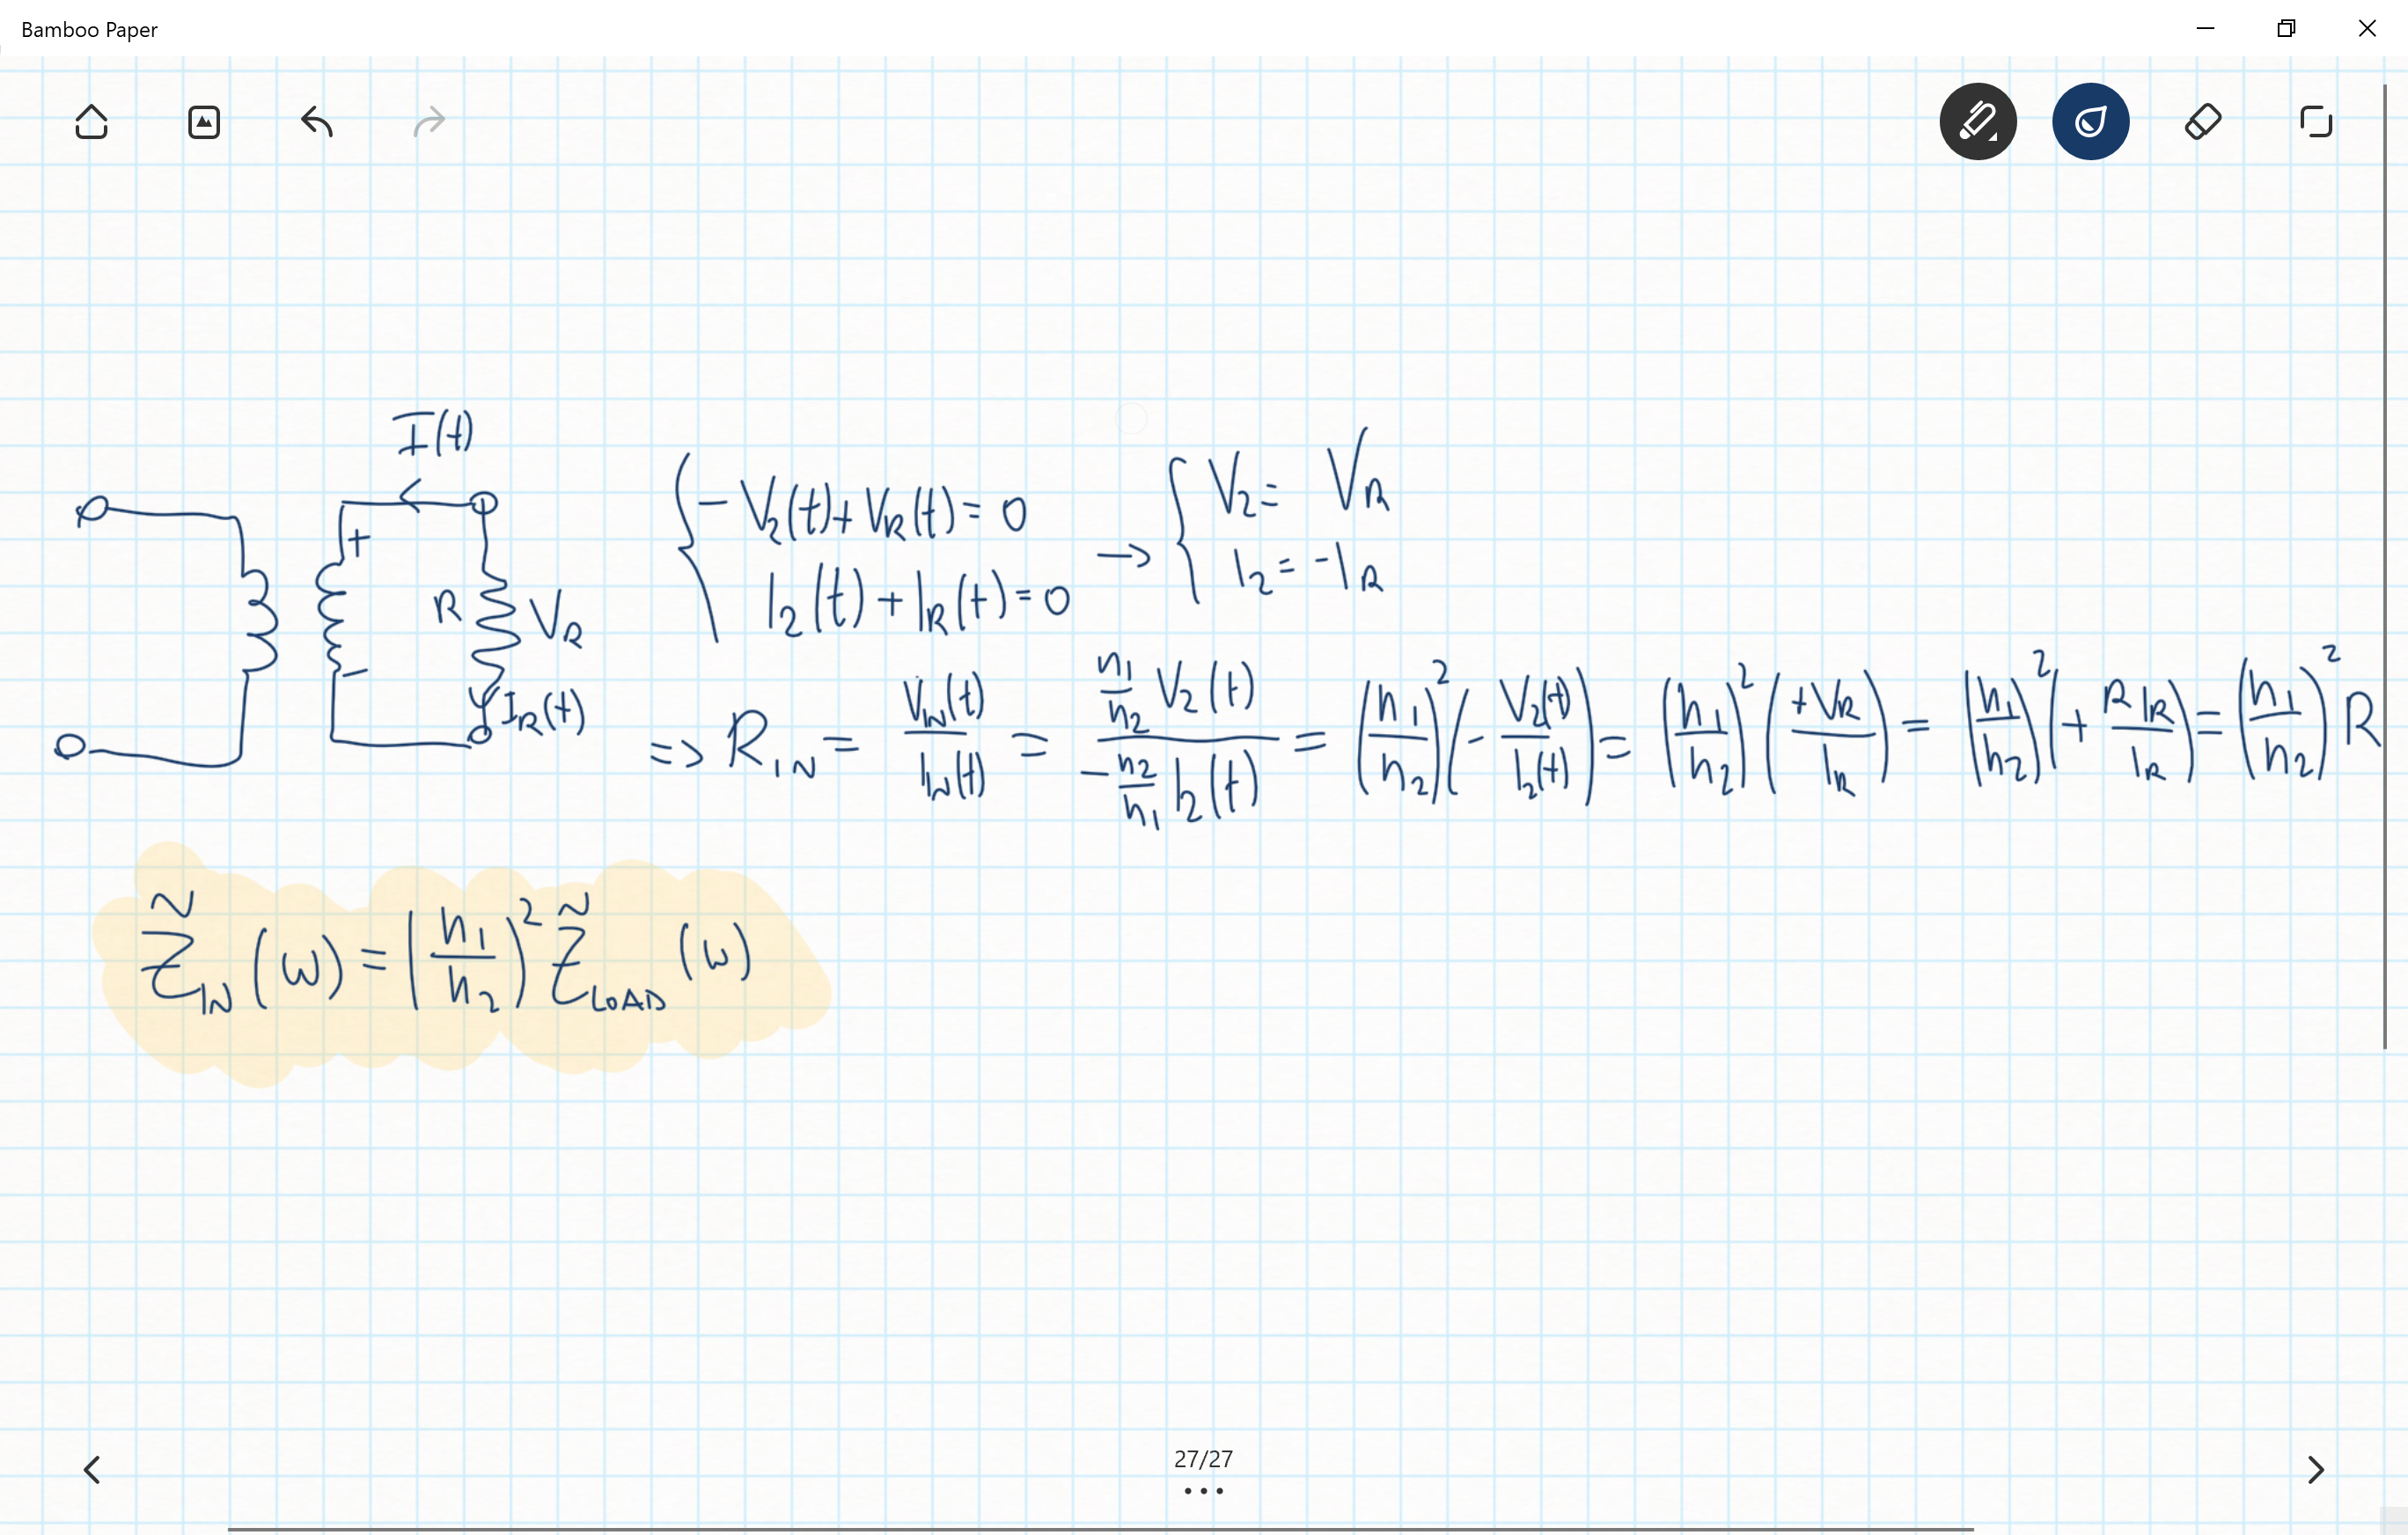 Bamboo Paper
I(t)
+
R
V_R
−
I_R(t)
{ −V_2(t) + V_R(t) = 0
I_2(t) + I_R(t) = 0
→ { V_2 = V_R
I_2 = −I_R
=> R_IN = V_IN(t) / I_IN(t) = (n_1/n_2 V_2(t)) / (−n_2/n_1 I_2(t)) = (n_1/n_2)^2 (− V_2(t)/I_2(t)) = (n_1/n_2)^2 (+V_R/I_R) = (n_1/n_2)^2 (+ R I_R/I_R) = (n_1/n_2)^2 R
Z̃_IN (ω) = (n_1/n_2)^2 Z̃_LOAD (ω)
27/27